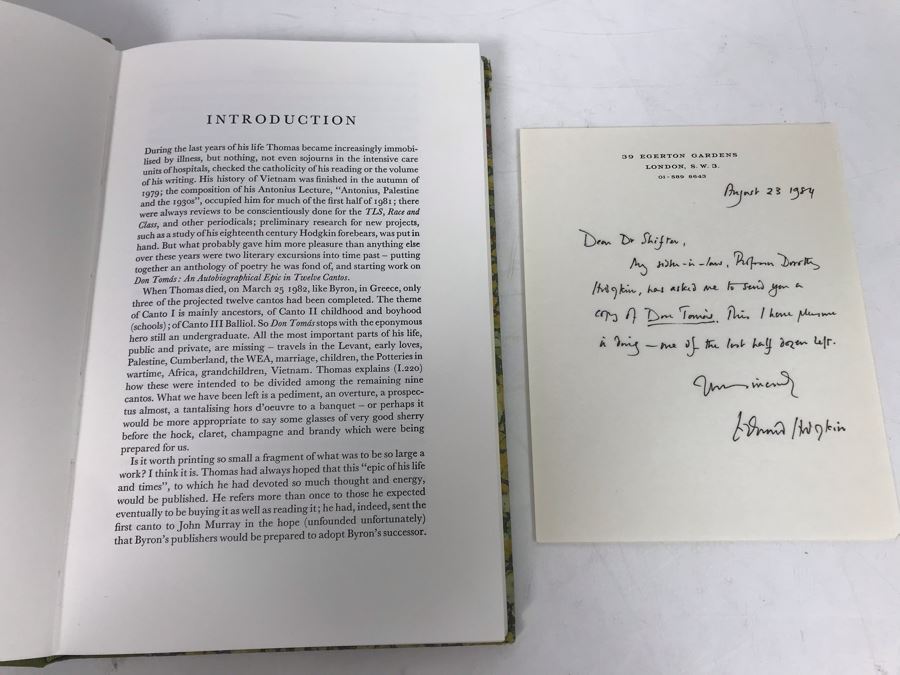 INTRODUCTION
During the last years of his life Thomas became increasingly immobi-
lised by illness, but nothing, not even sojourns in the intensive care
units of hospitals, checked the catholicity of his reading or the volume
of his writing. His history of Vietnam was finished in the autumn of
1979; the composition of his Antonius Lecture, “Antonius, Palestine
and the 1930s”, occupied him for much of the first half of 1981; there
were always reviews to be conscientiously done for the TLS, Race and
Class, and other periodicals; preliminary research for new projects,
such as a study of his eighteenth century Hodgkin forebears, was put in
hand. But what probably gave him more pleasure than anything else
over these years were two literary excursions into time past – putting
together an anthology of poetry he was fond of, and starting work on
Don Tomás: An Autobiographical Epic in Twelve Cantos.
When Thomas died, on March 25 1982, like Byron, in Greece, only
three of the projected twelve cantos had been completed. The theme
of Canto I is mainly ancestors, of Canto II childhood and boyhood
(schools); of Canto III Balliol. So Don Tomás stops with the eponymous
hero still an undergraduate. All the most important parts of his life,
public and private, are missing – travels in the Levant, early loves,
Palestine, Cumberland, the WEA, marriage, children, the Potteries in
wartime, Africa, grandchildren, Vietnam. Thomas explains (I.220)
how these were intended to be divided among the remaining nine
cantos. What we have been left is a pediment, an overture, a prospec-
tus almost, a tantalising hors d'oeuvre to a banquet – or perhaps it
would be more appropriate to say some glasses of very good sherry
before the hock, claret, champagne and brandy which were being
prepared for us.
Is it worth printing so small a fragment of what was to be so large a
work? I think it is. Thomas had always hoped that this “epic of his life
and times”, to which he had devoted so much thought and energy,
would be published. He refers more than once to those he expected
eventually to be buying it as well as reading it; he had, indeed, sent the
first canto to John Murray in the hope (unfounded unfortunately)
that Byron's publishers would be prepared to adopt Byron's successor.
39 EGERTON GARDENS
LONDON, S.W.3.
01-589 8643
August 23 1984
Dear Dr Shifter,
My sister-in-law, Professor Dorothy
Hodgkin, has asked me to send you a
copy of Don Tomás. This I have pleasure
in doing – one of the last half dozen left.
Yours sincerely
Edward Hodgkin